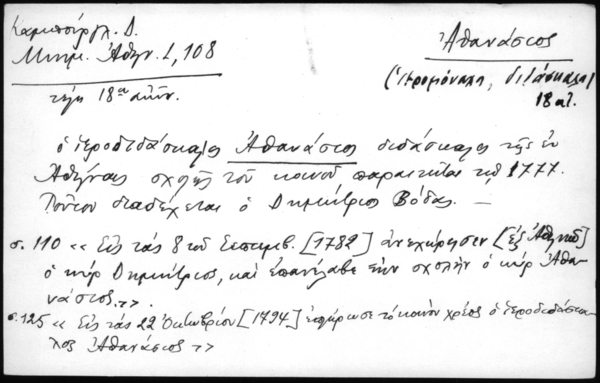 Καμπούργλ. Δ.
Μνημ. Ἀθην. 1, 108
Ἀθανάσιος
(ἱερομόναχ, διδάσκαλ)
τέλη 18ου αἰῶν.
18 αἰ.
ὁ ἱεροδιδάσκαλος Ἀθανάσιος διδάσκαλος τῆς ἐν
Ἀθήναις σχολῆς τοῦ κοινοῦ παραιτεῖται τῷ 1777.
Τοῦτον διαδέχεται ὁ Δημήτριος Βόδας. —
σ. 110 << Εἰς τὰς 8 τοῦ Σεπτεμβ. [1782] ἀνεχώρησεν [ἐξ Ἀθηνῶν]
ὁ κὺρ Δημήτριος, καὶ ἐπανέλαβε τὴν σχολὴν ὁ κὺρ Ἀθα-
νάσιος. >>.
σ. 125 << Εἰς τὰς 22 Ὀκτωβρίου [1794] ἐπλήρωσε τὸ κοινὸν χρέος ὁ ἱεροδιδάσκα-
λος Ἀθανάσιος >>